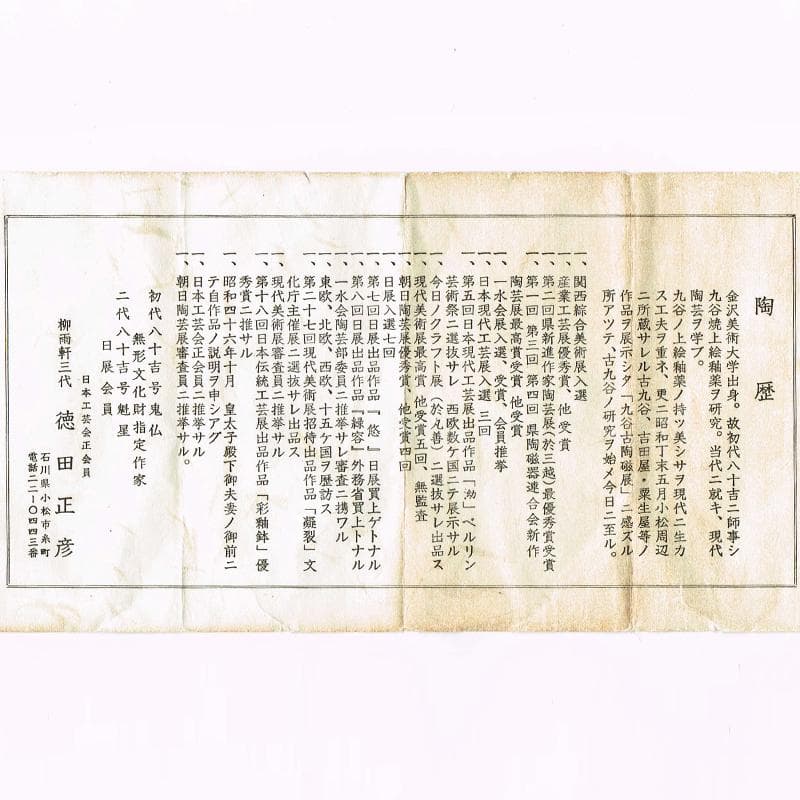 陶歴
金沢美術大学出身。故初代八十吉ニ師事シ
九谷焼上絵釉薬ヲ研究。当代ニ就キ、現代
陶芸ヲ学ブ。
九谷ノ上絵釉薬ノ持ツ美シサヲ現代ニ生カ
ス工夫ヲ重ネ、更ニ昭和丁末五月小松周辺
ニ所蔵サレル古九谷、吉田屋・粟生屋等ノ
作品ヲ展示シタ「九谷古陶磁展」ニ感ズル
所アツテ、古九谷ノ研究ヲ始メ今日ニ至ル。
一、関西綜合美術展入選
一、産業工芸展優秀賞、他受賞
一、第二回県新進作家陶芸展(於三越)最優秀賞受賞
一、第一回 第三回 第四回 県陶磁器連合会新作
陶芸展最高賞受賞他受賞
一、一水会展入選、受賞、会員推挙
一、日本現代工芸展入選 三回
一、第五回日本現代工芸展出品作品「渤」ベルリン
芸術祭ニ選抜サレ 西欧数ケ国ニテ展示サル
一、今日ノクラフト展(於丸善)ニ選抜サレ出品ス
一、現代美術展最高賞 他受賞五回、無監査
一、朝日陶芸展優秀賞、他受賞四回
一、日展入選七回
一、第七回日展出品作品「悠」日展買上ゲトナル
一、第八回日展出品作品「緑容」外務省買上トナル
一、一水会陶芸部委員ニ推挙サレ審査ニ携ワル
一、東欧、北欧、西欧、十五ケ国ヲ歴訪ス
一、第二十七回現代美術展招待出品作品「凝裂」文
化庁主催展ニ選抜サレ出品ス
一、現代美術展審査員ニ推挙サル
一、第十八回日本伝統工芸展出品作品「彩釉鉢」優
秀賞ニ推サル
一、昭和四十六年十月 皇太子殿下御夫妻ノ御前ニ
テ自作品ノ説明ヲ申シアグ
一、日本工芸会正会員ニ推挙サル
一、朝日陶芸展審査員ニ推挙サル。
初代八十吉号鬼仏
無形文化財指定作家
二代八十吉号魁星
日展会員
日本工芸会正会員
柳雨軒三代 徳田正彦
石川県小松市糸町
電話二二-〇四四三番